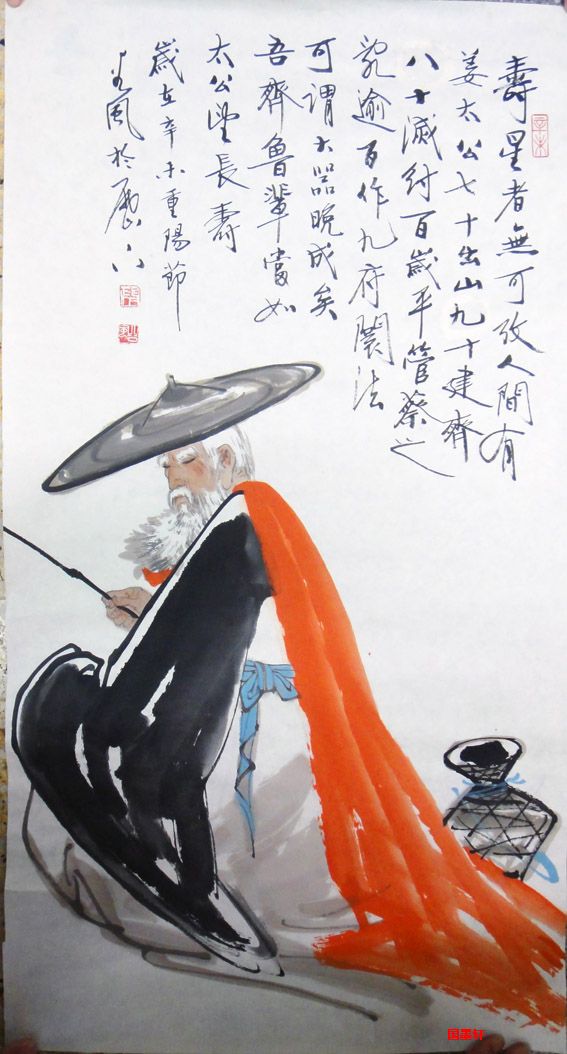 壽星者無可攷人間有
姜太公七十出山九十建齊
八十滅紂百歲平管蔡之
亂逾百作九府闤法
可謂大器晚成矣
吾齊魯輩當如
太公望長壽
歲在辛未重陽節
風於歷下
辛未
国墨轩